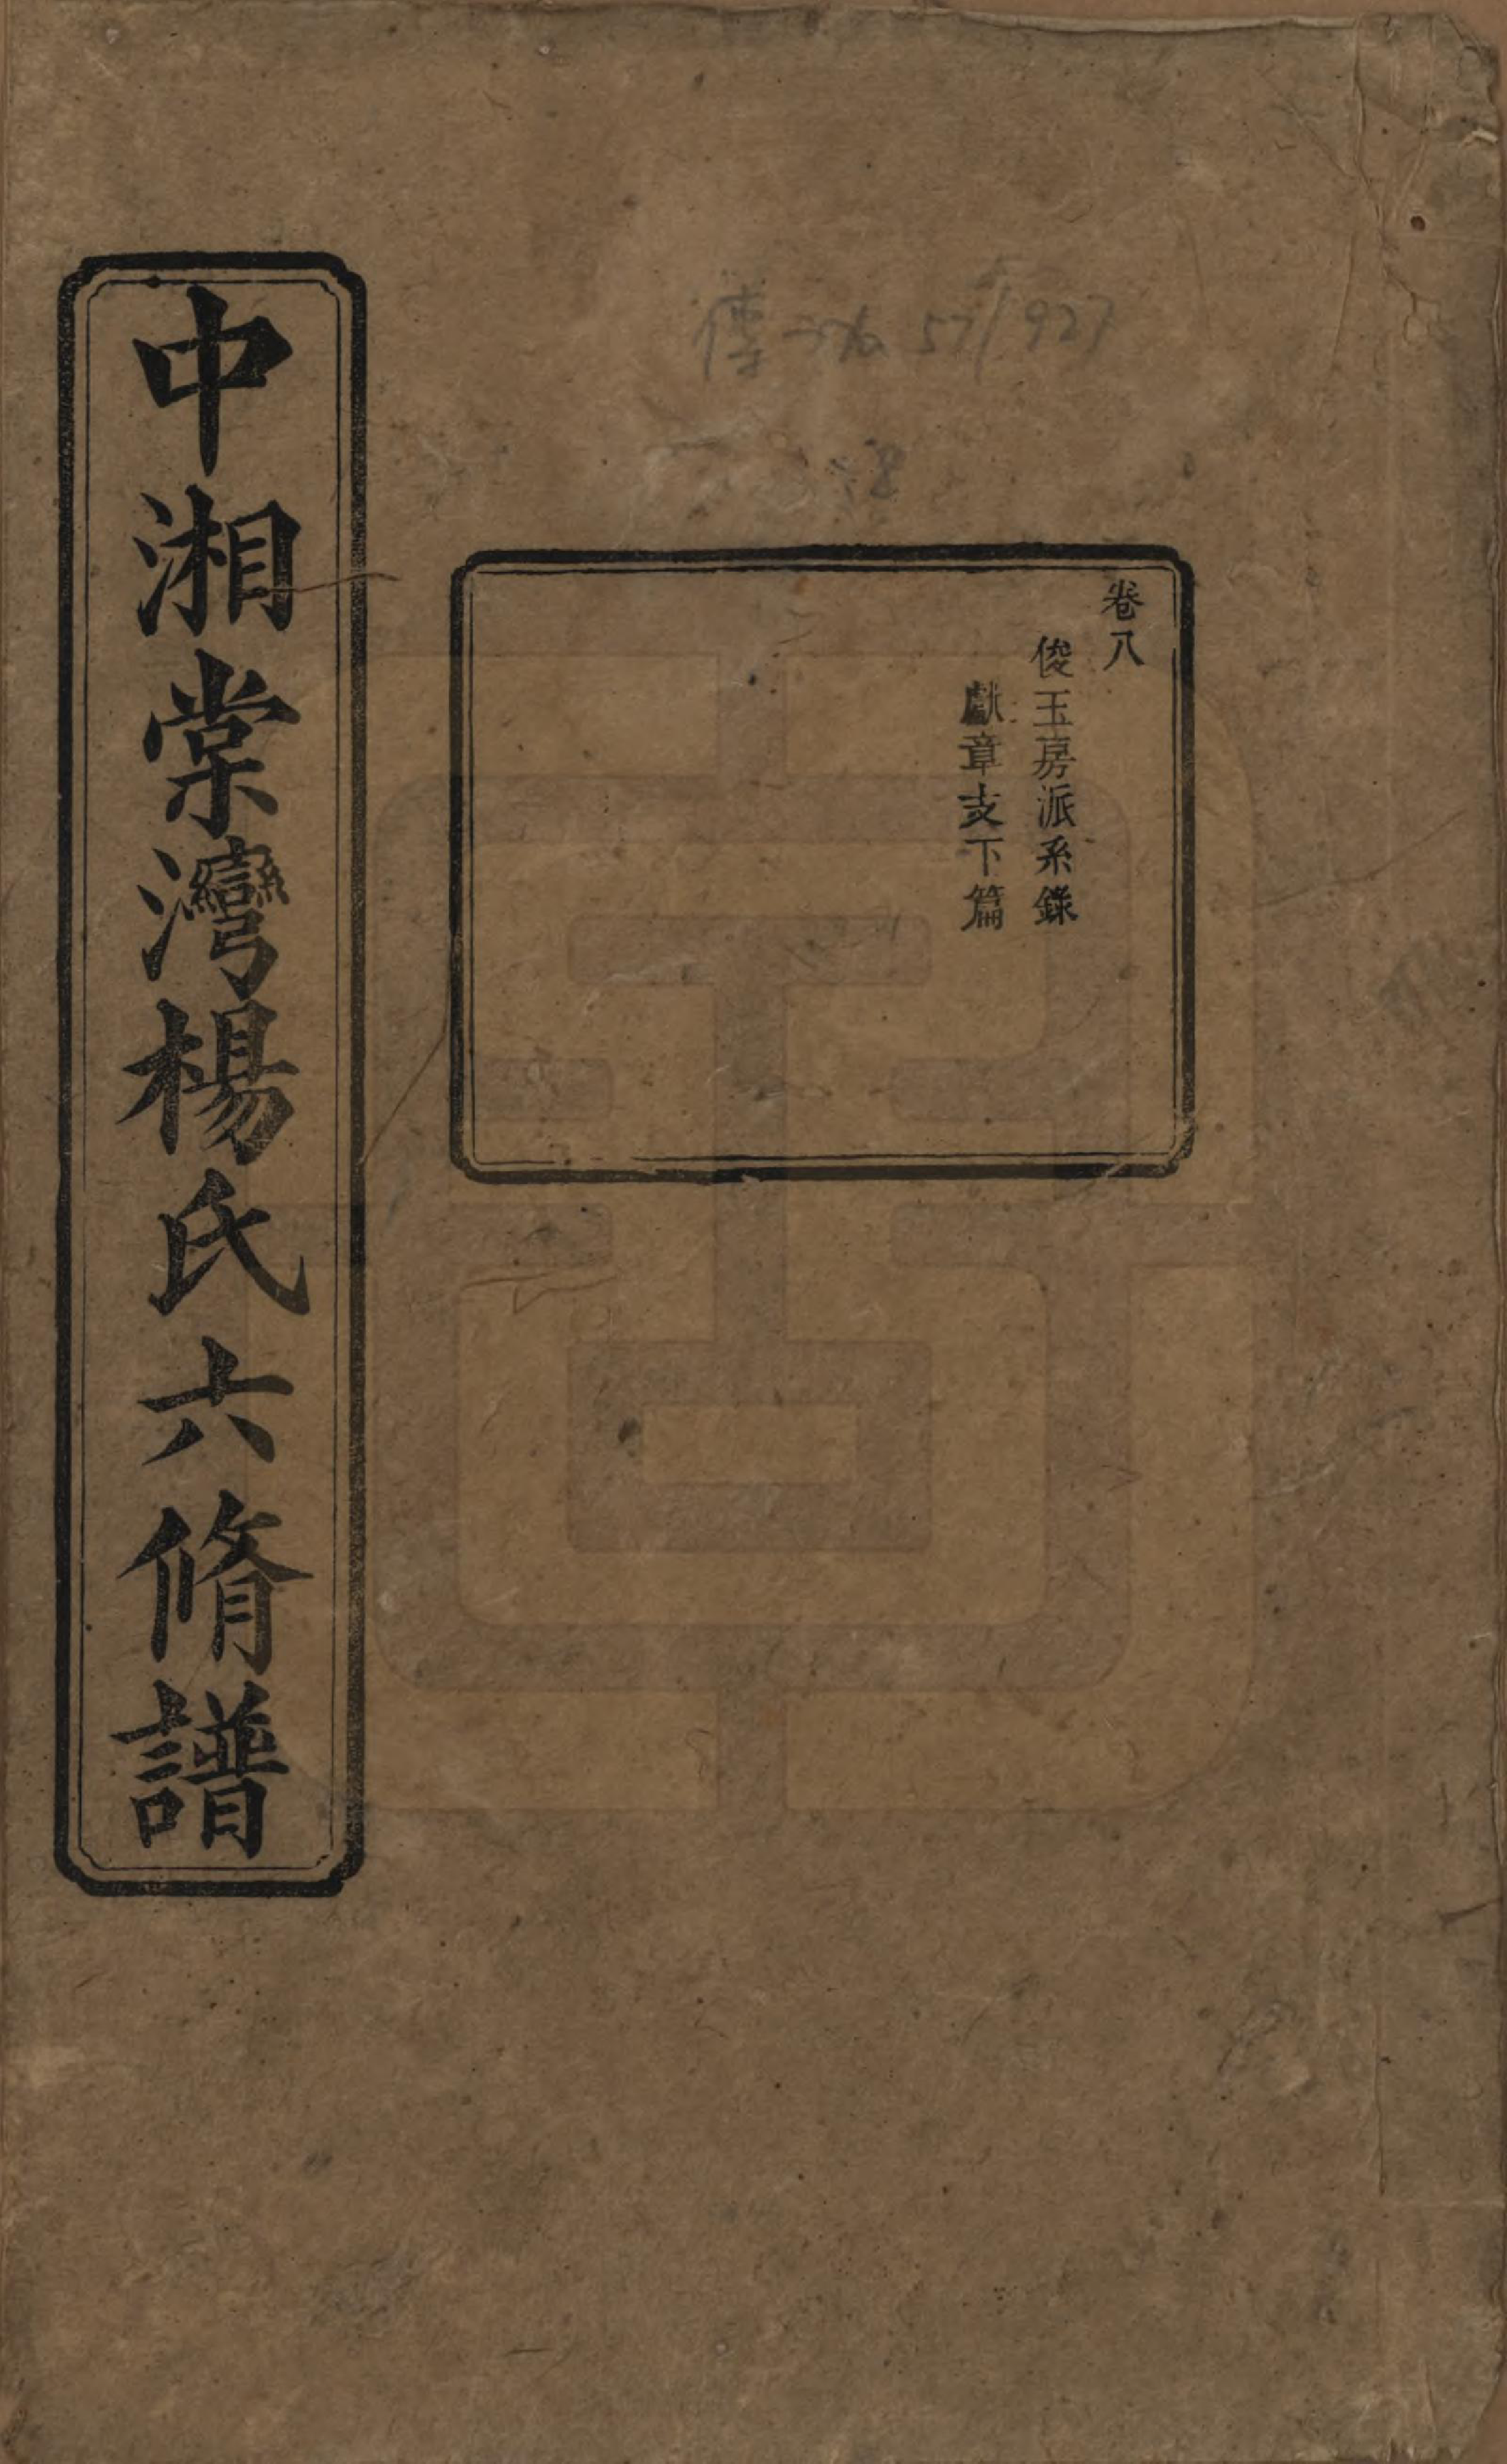 卷八
俊玉房派系錄
獻章支下篇
中湘棠灣楊氏六脩譜